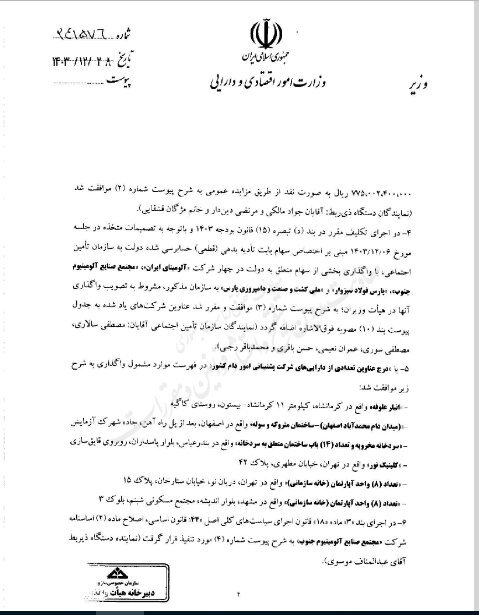 شماره ۲۴۱۵۷۶
تاریخ ۱۴۰۳/۱۲/۲۸
پیوست
جمهوری اسلامی ایران
وزارت امور اقتصادی و دارایی
وزیر
۷۷۵,۰۰۲,۴۰۰,۰۰۰ ریال به صورت نقد از طریق مزایده عمومی به شرح پیوست شماره (۲) موافقت شد
(نمایندگان دستگاه ذی‌ربط: آقایان جواد مالکی و مرتضی دین‌دار و خانم مژگان قشقایی).
۴- در اجرای تکلیف مقرر در بند (د) تبصره (۱۵) قانون بودجه ۱۴۰۳ و باتوجه به تصمیمات متخذه در جلسه
مورخ ۱۴۰۳/۱۲/۰۶ مبنی بر اختصاص سهام بابت تأدیه بدهی (قطعی) حسابرسی شده دولت به سازمان تأمین
اجتماعی، با واگذاری بخشی از سهام متعلق به دولت در چهار شرکت «آلومینای ایران»، «مجتمع صنایع آلومینیوم
جنوب»، «پارس فولاد سبزوار» و «ملی کشت و صنعت و دامپروری پارس» به سازمان مذکور، مشروط به تصویب واگذاری
آنها در هیأت وزیران؛ به شرح پیوست شماره (۳) موافقت و مقرر شد عناوین شرکت‌های یاد شده به جدول
پیوست بند (۱۰) مصوبه فوق‌الاشاره اضافه گردد (نمایندگان سازمان تأمین اجتماعی آقایان: مصطفی سالاری،
مصطفی سوری، عمران نعیمی، حسن باقری و محمدباقر رجبی).
۵- با «درج عناوین تعدادی از دارایی‌های شرکت پشتیبانی امور دام کشور» در فهرست موارد مشمول واگذاری به شرح
زیر موافقت شد:
-انبار علوفه» واقع در کرمانشاه، کیلومتر ۱۱ کرمانشاه- بیستون، روستای کاکیه
-(میدان دام محمدآباد اصفهان)- ساختمان متروکه و سوله» واقع در اصفهان، بعد از پل راه آهن، جاده شهرک آزمایش
-سردخانه مخروبه و تعداد (۱۴) باب ساختمان متعلق به سردخانه» واقع در بندرعباس، بلوار پاسداران، روبروی قایق‌سازی
-کلینیک نور» واقع در تهران، خیابان مطهری، پلاک ۴۲
-تعداد (۸) واحد آپارتمان (خانه سازمانی)» واقع در تهران، دریان نو، خیابان ستارخان، پلاک ۱۵
-تعداد (۸) واحد آپارتمان (خانه سازمانی)» واقع در مشهد، بلوار اندیشه، مجتمع مسکونی شبنم، بلوک ۳
۶- در اجرای بند «۳» ماده «۱۸» قانون اجرای سیاست‌های کلی اصل «۴۴» قانون اساسی، اصلاح ماده (۲) اساسنامه
شرکت «مجتمع صنایع آلومینیوم جنوب» به شرح پیوست شماره (۴) مورد تنفیذ قرار گرفت (نماینده دستگاه ذیربط
آقای عبدالمناف موسوی).
سازمان خصوصی‌سازی
دبیرخانه هیأت واگذاری
۲